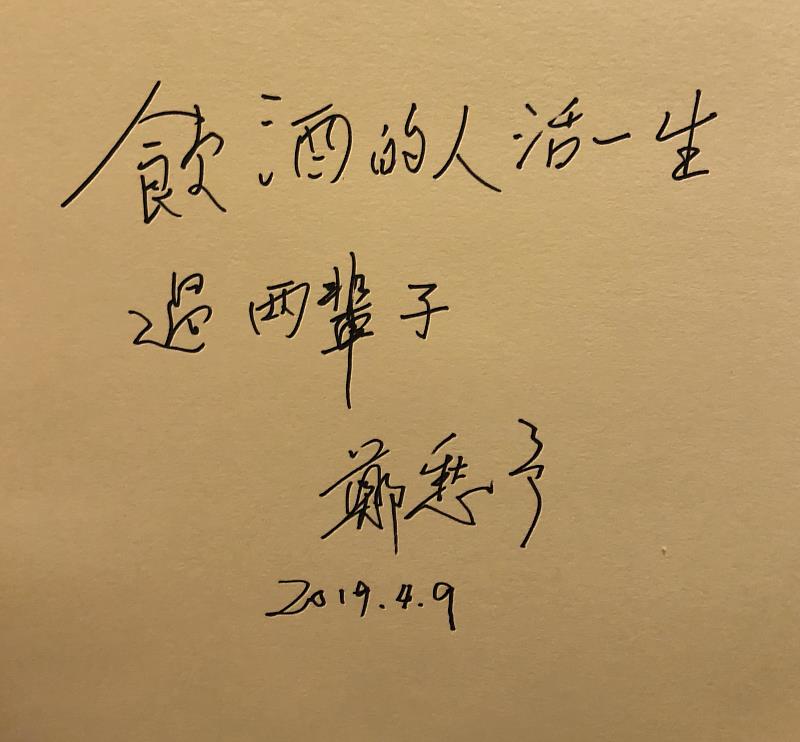 飲酒的人活一生
過兩輩子
鄭愁予
2019.4.9